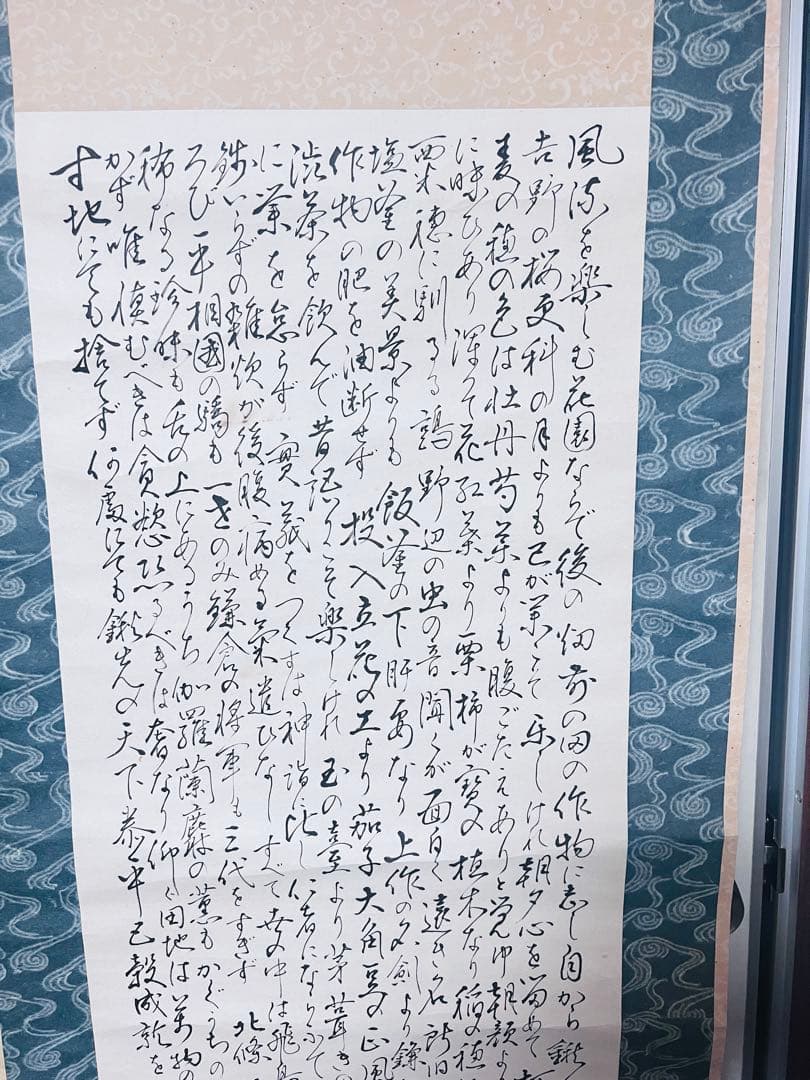 風流を楽しむ花園ならで後の畑前の田の作物に志し自から鍬
吉野の桜更科の月よりも己が業こそ楽しけれ朝夕心を留めて
麦の穂の色は牡丹芍薬よりも腹ごたえありと覚ゆ朝顔よ
に味ひあり深くて花紅葉より栗柿が宝の植木なり稲の穂
粟穂に馴るる鶉野辺の虫の音聞くが面白く遠き名所旧
塩釜の美景よりも飯釜の下肝要なり上作の名剣より鎌
作物の肥を油断せず投入立花の工より茄子大角豆の正風
渋茶を飲んで昔語りこそ楽しけれ玉の台より茅葺きの
に業を怠らず実義をつくすは神詣に比し仁者にならふて
銭いらずの雑炊が後腹病める気遣ひなしすべて世の中は飛鳥
ろび平相国の驕も一世のみ鎌倉の将軍も三代をすぎず北条
稀なる珍味も舌の上にあるうち伽羅蘭麝の薫もかぐうちの
かず唯慎むべきは貪慾恐るべきは奢なり仰く田地は万物の
す地にても捨てず何処にても鍬先の天下泰平五穀成就を